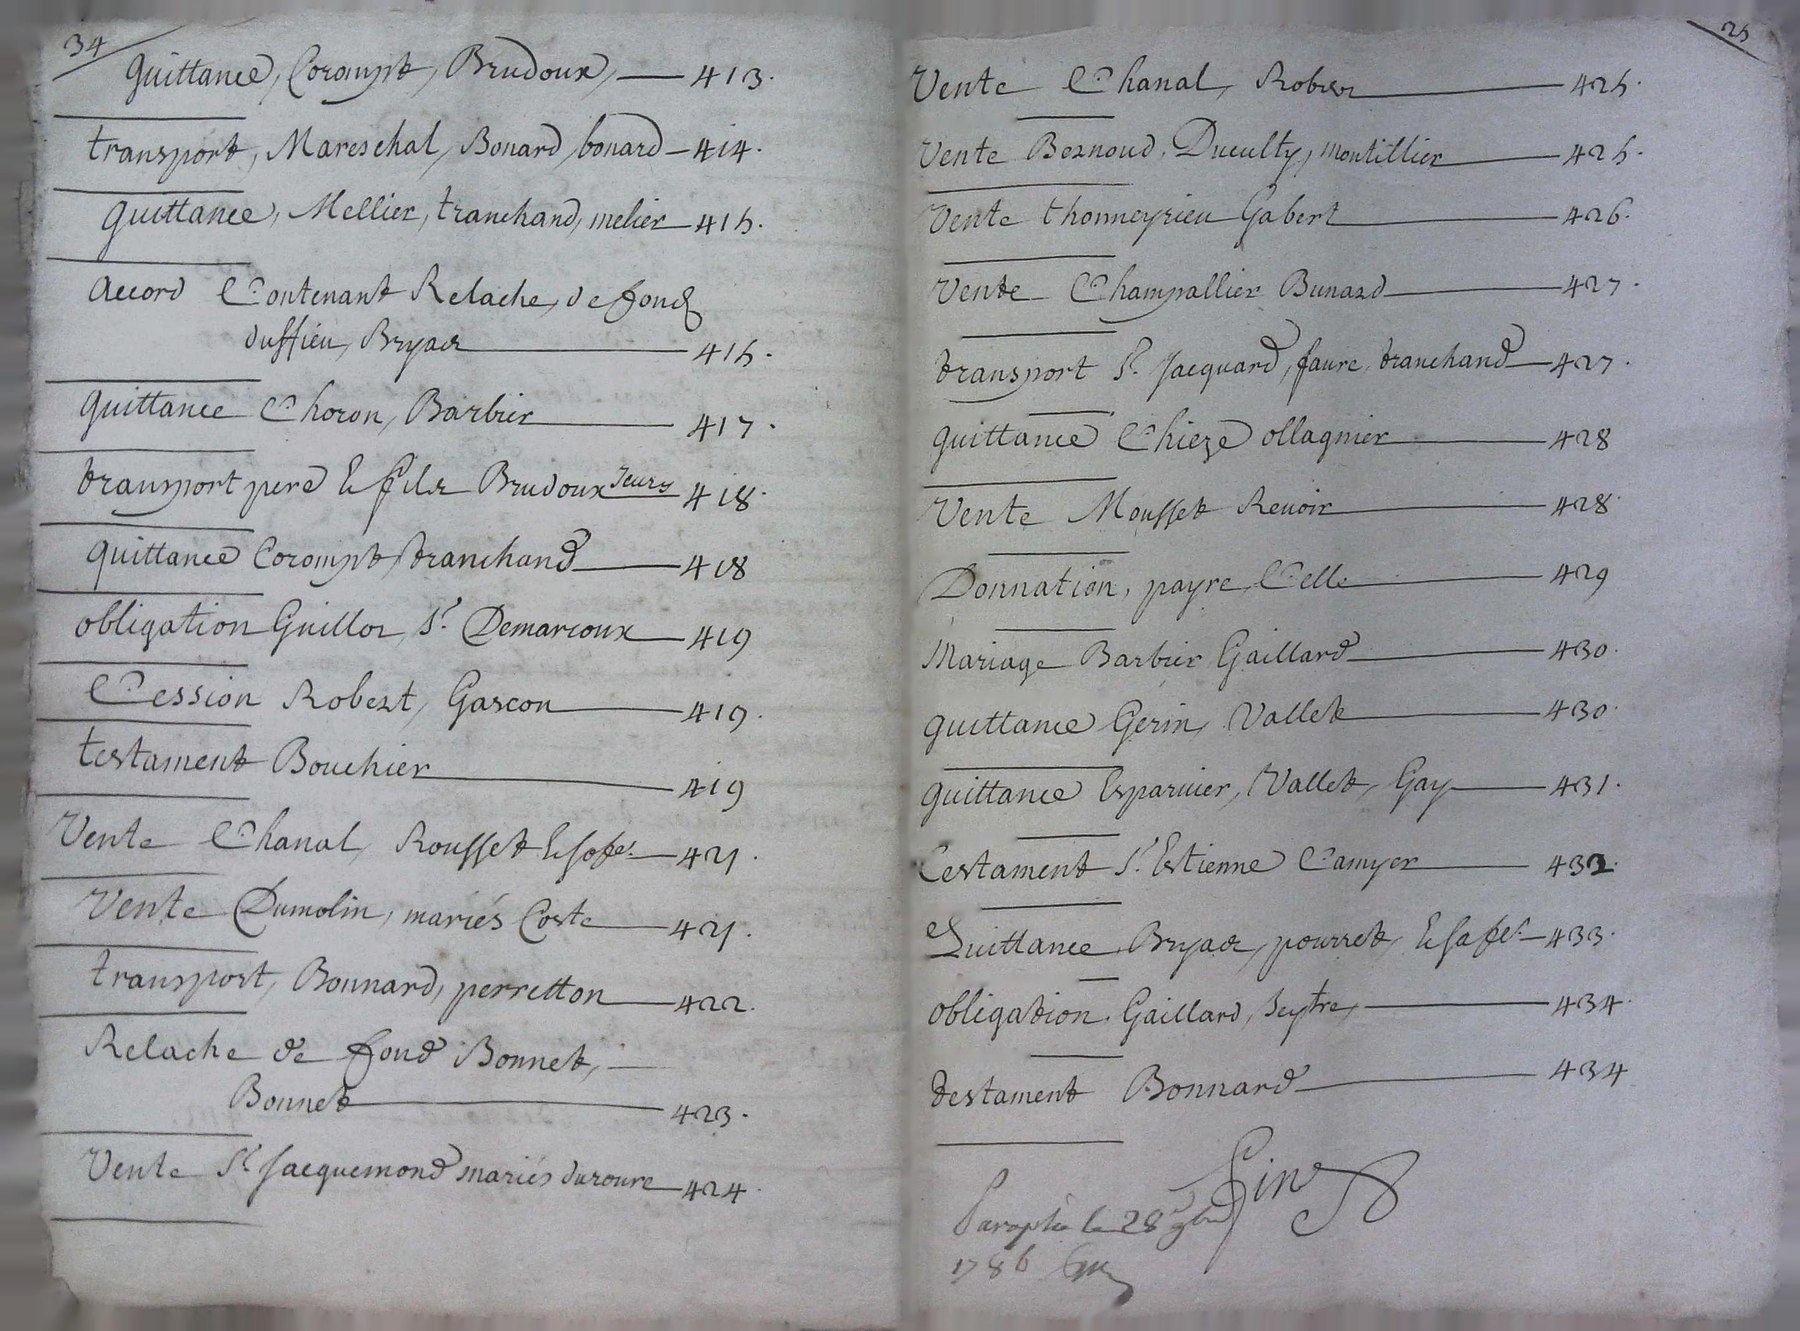 34
quittance, Corompt, Brudoux, 413.
transport, Mareschal, Bonard, bonard 414.
quittance, Mellier, tranchand, melier 415.
accord Contenant Relache, de fond
duffieu, Bryas 415.
quittance Choron, Barbier 417.
transport pere & fils Brudoux 418.
quittance Corompt, tranchand 418
obligation Guillot, Sr. Demarcoux 419
Cession Robert, Gascon 419.
testament Bouchier 419
Vente Chanal, Rousset & sa fe. 421.
Vente Dumolin, mariés Coste 421.
transport, Bonnard, perretton 422.
Relache de fond Bonnet,
Bonnet 423.
Vente Sr. Jacquemond mariés duroure 424.
25
Vente Chanal, Rober 425.
Vente Beznoud, Duculty, montillier 425.
Vente thonneyrieu Gabert 426.
Vente Champallier Bunard 427.
transport Sr. Jacquard, faure, tranchand 427.
quittance Chieze ollagnier 428
Vente Mousset Revoir 428.
Donnation, payre, Celle 429
Mariage Barbier Gaillard 430.
quittance Gerin, Vallet 430.
quittance Esparvier, Vallet, Gay 431.
testament Sr. Estienne Camyer 432.
Quittance, Bryas, pourret, & sa fe. 433.
obligation. Gaillard, Seytre, 434.
testament Bonnard 434
Fin
Paraphé le 28 9bre
1786